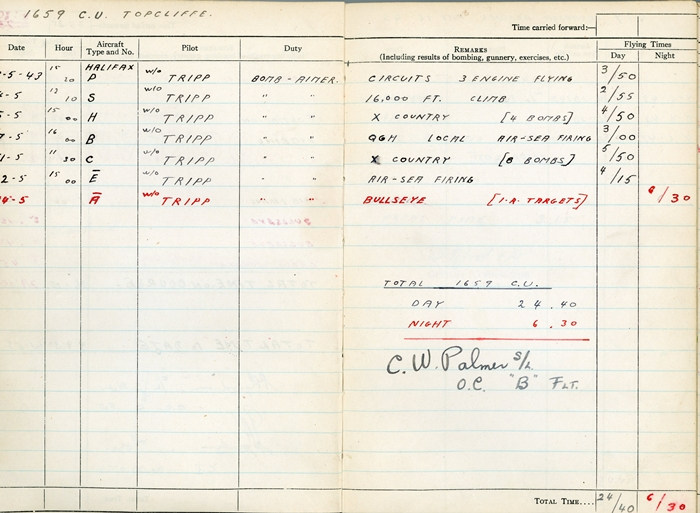 1659 C.U. TOPCLIFFE.
Time carried forward:—
Date Hour Aircraft Type and No. Pilot Duty REMARKS (Including results of bombing, gunnery, exercises, etc.) Flying Times Day Night
-5-43 15 20 HALIFAX P W/O TRIPP BOMB-AIMER. CIRCUITS 3 ENGINE FLYING 3/50
-5 13 10 S W/O TRIPP " " 16,000 FT. CLIMB 2/55
-5 15 00 H W/O TRIPP " " X COUNTRY [4 BOMBS] 4/50
7-5 16 00 B W/O TRIPP " " QGH LOCAL AIR-SEA FIRING 3/00
1-5 11 30 C W/O TRIPP " " X COUNTRY [8 BOMBS] 5/50
2-5 15 00 E W/O TRIPP " " AIR-SEA FIRING 4/15
4-5 A W/O TRIPP " " BULLSEYE [I.R. TARGETS] 6/30
TOTAL 1659 C.U.
DAY 24.40
NIGHT 6.30
C.W. Palmer S/L
O.C. "B" FLT.
TOTAL TIME.... 24/40 6/30